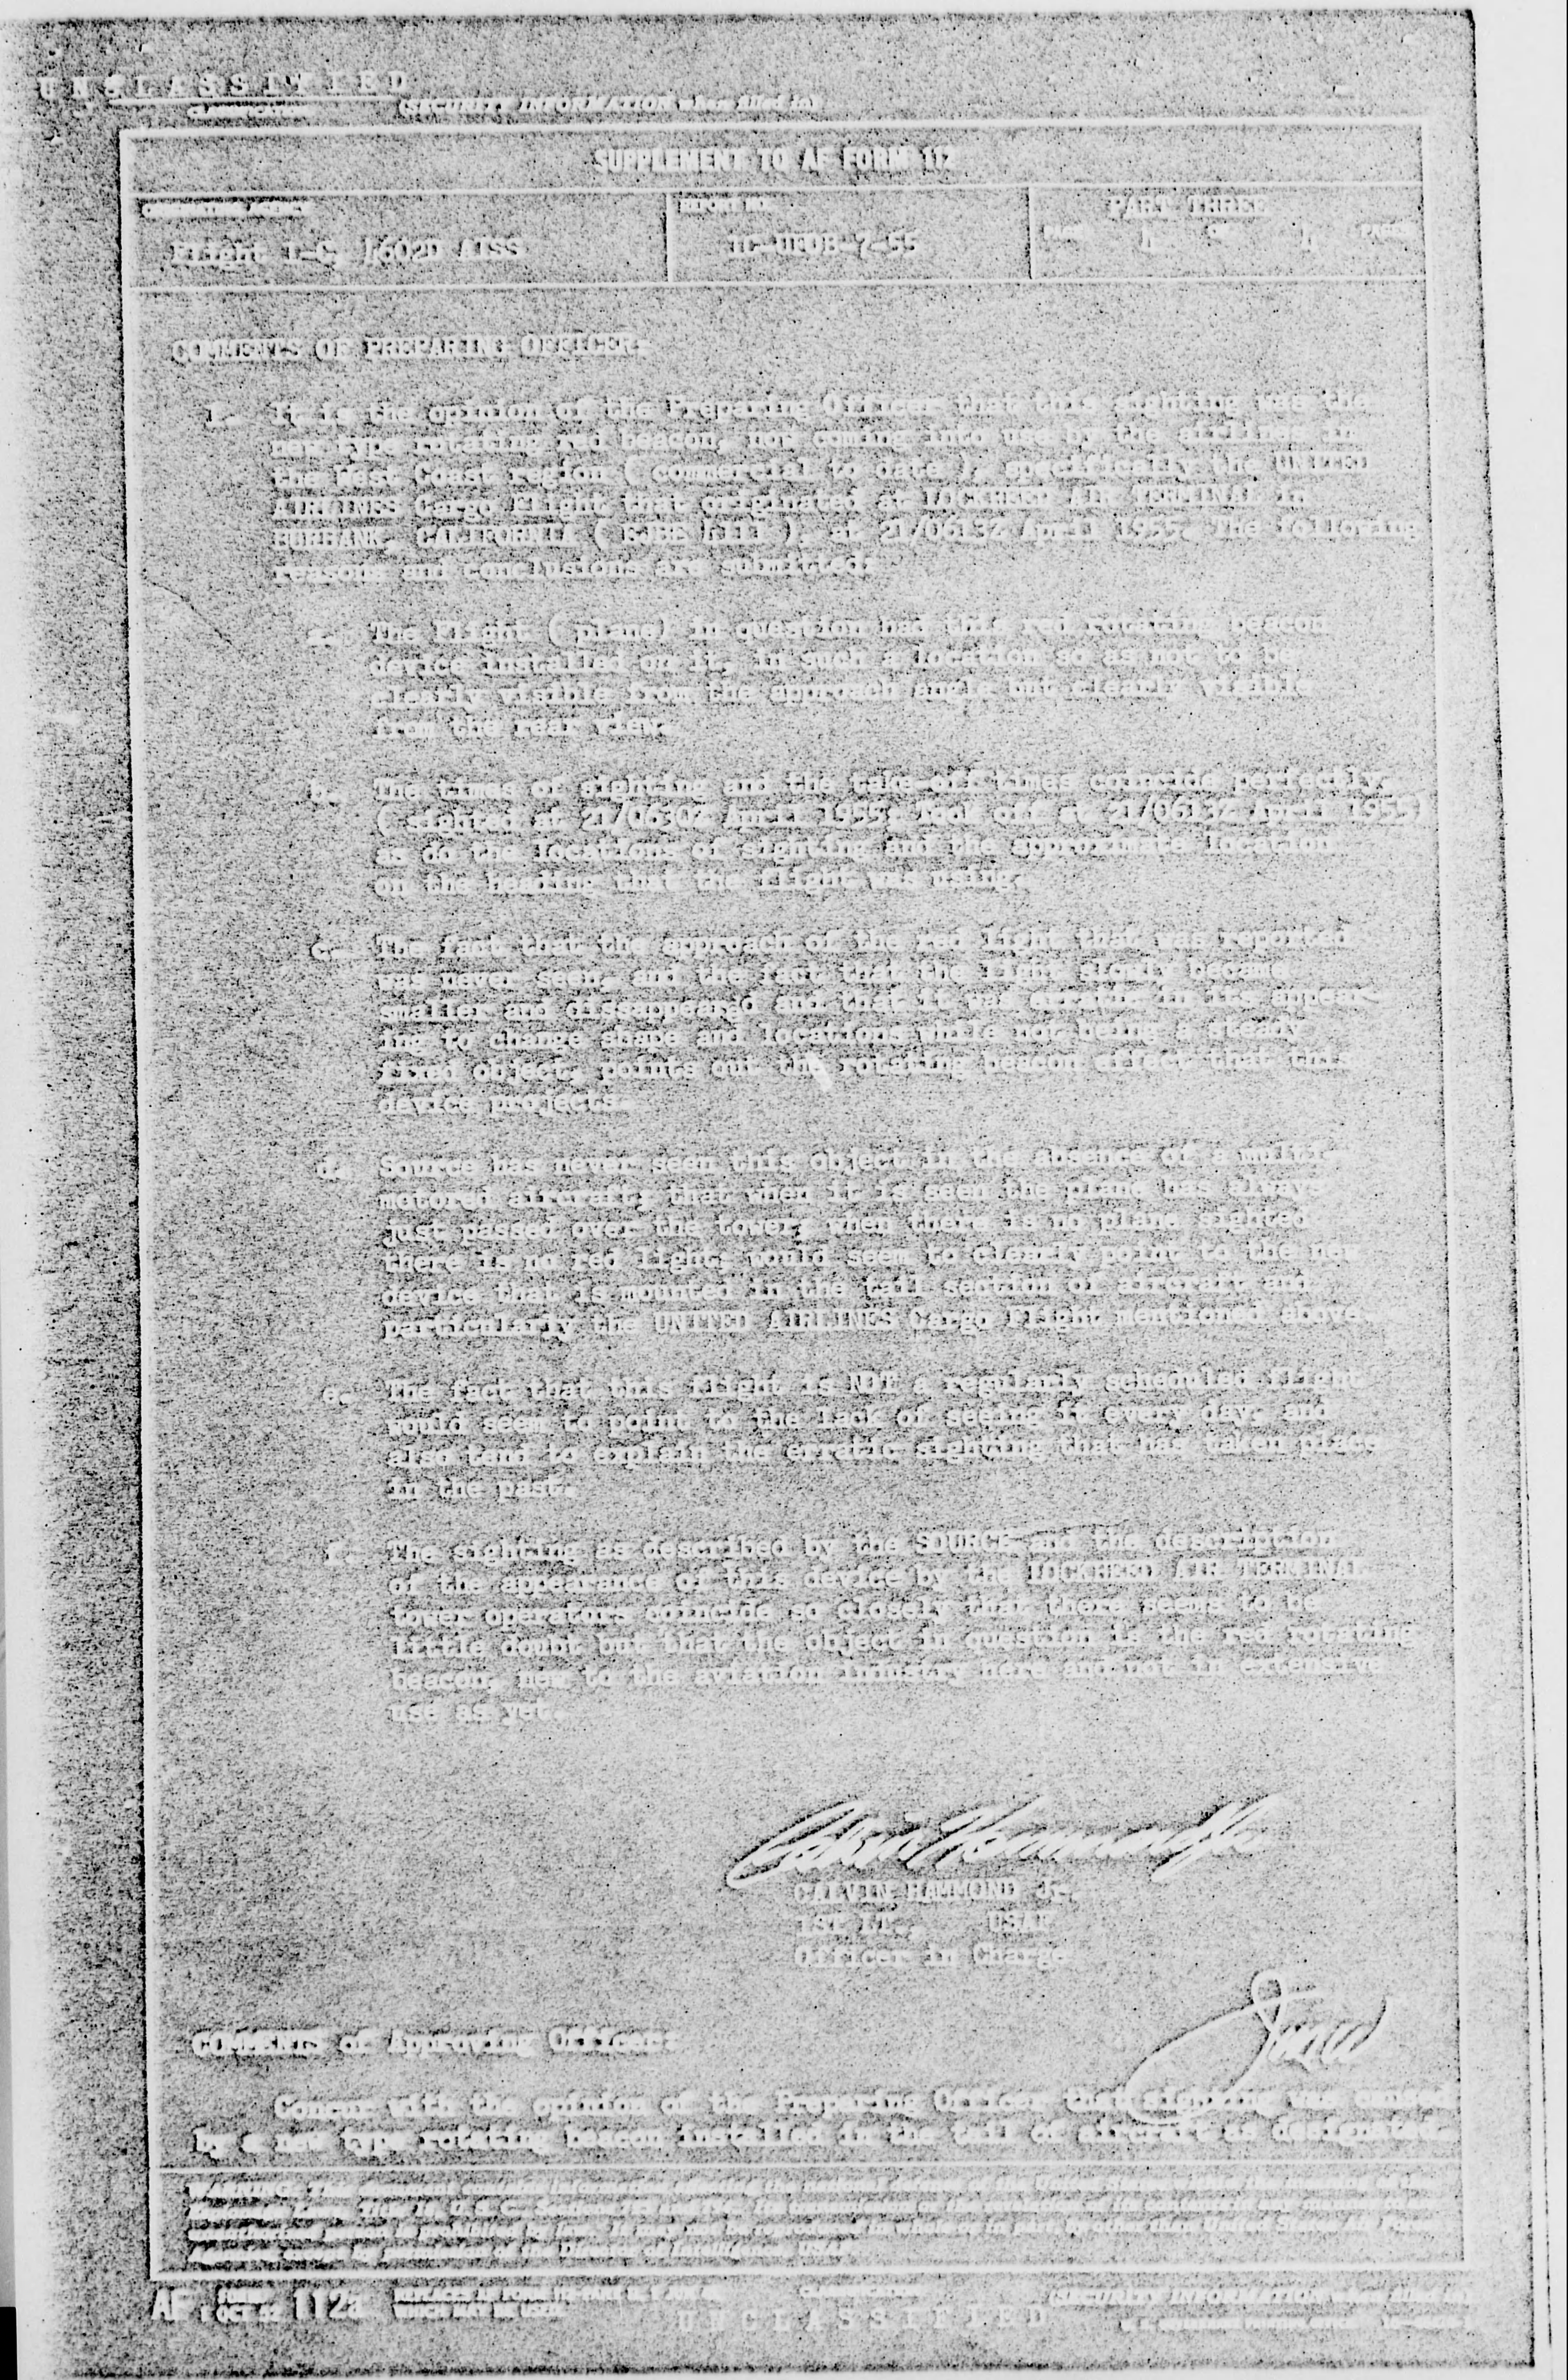 UNCLASSIFIED
(SECURITY INFORMATION when filled in)
SUPPLEMENT TO AF FORM 112
REPORT NO.
PART THREE
Flight 1-C, 4602D AISS
IC-UFOB-7-55
PAGE OF PAGES
COMMENTS OF PREPARING OFFICER:
1. It is the opinion of the Preparing Officer that this sighting was the
new type rotating red beacon, now coming into use by the airlines in
the West Coast region ( commercial to date ), specifically the UNITED
AIRLINES Cargo Flight that originated at LOCKHEED AIR TERMINAL in
BURBANK, CALIFORNIA at 21/0613Z April 1955. The following
reasons and conclusions are submitted:
a. The Flight (plane) in question had this red rotating beacon
device installed on it, in such a location so as not to be
clearly visible from the approach angle but clearly visible
from the rear view.
b. The times of sighting and the take-off times coincide perfectly.
( sighted at 21/0630Z April 1955, took off at 21/0613Z April 1955)
as do the locations of sighting and the approximate location
on the heading that the flight was using.
c. The fact that the approach of the red light that was reported
was never seen, and the fact that the light slowly became
smaller and dissappeared and that it was erratic in its appear-
ing to change shape and locations while not being a steady
fixed object, points out the rotating beacon effect that this
device projects.
d. Source has never seen this object in the absence of a multi-
motored aircraft, that when it is seen the plane has always
just passed over the tower, when there is no plane sighted
there is no red light, would seem to clearly point to the new
device that is mounted in the tail section of aircraft and
particularly the UNITED AIRLINES Cargo Flight mentioned above.
e. The fact that this flight is NOT a regularly scheduled flight
would seem to point to the lack of seeing it every day, and
also tend to explain the erratic sighting that has taken place
in the past.
f. The sighting as described by the SOURCE and the description
of the appearance of this device by the LOCKHEED AIR TERMINAL
tower operators coincide so closely that there seems to be
little doubt but that the object in question is the red rotating
beacon, new to the aviation industry here and not in extensive
use as yet.
CALVIN HAMMOND Jr.
1st Lt., USAF
Officer in Charge
COMMENTS of Approving Officer:
Concur with the opinion of the Preparing Officer that sighting was caused
by a new type rotating beacon installed in the tail of aircraft as designated.
AF FORM 112a
UNCLASSIFIED